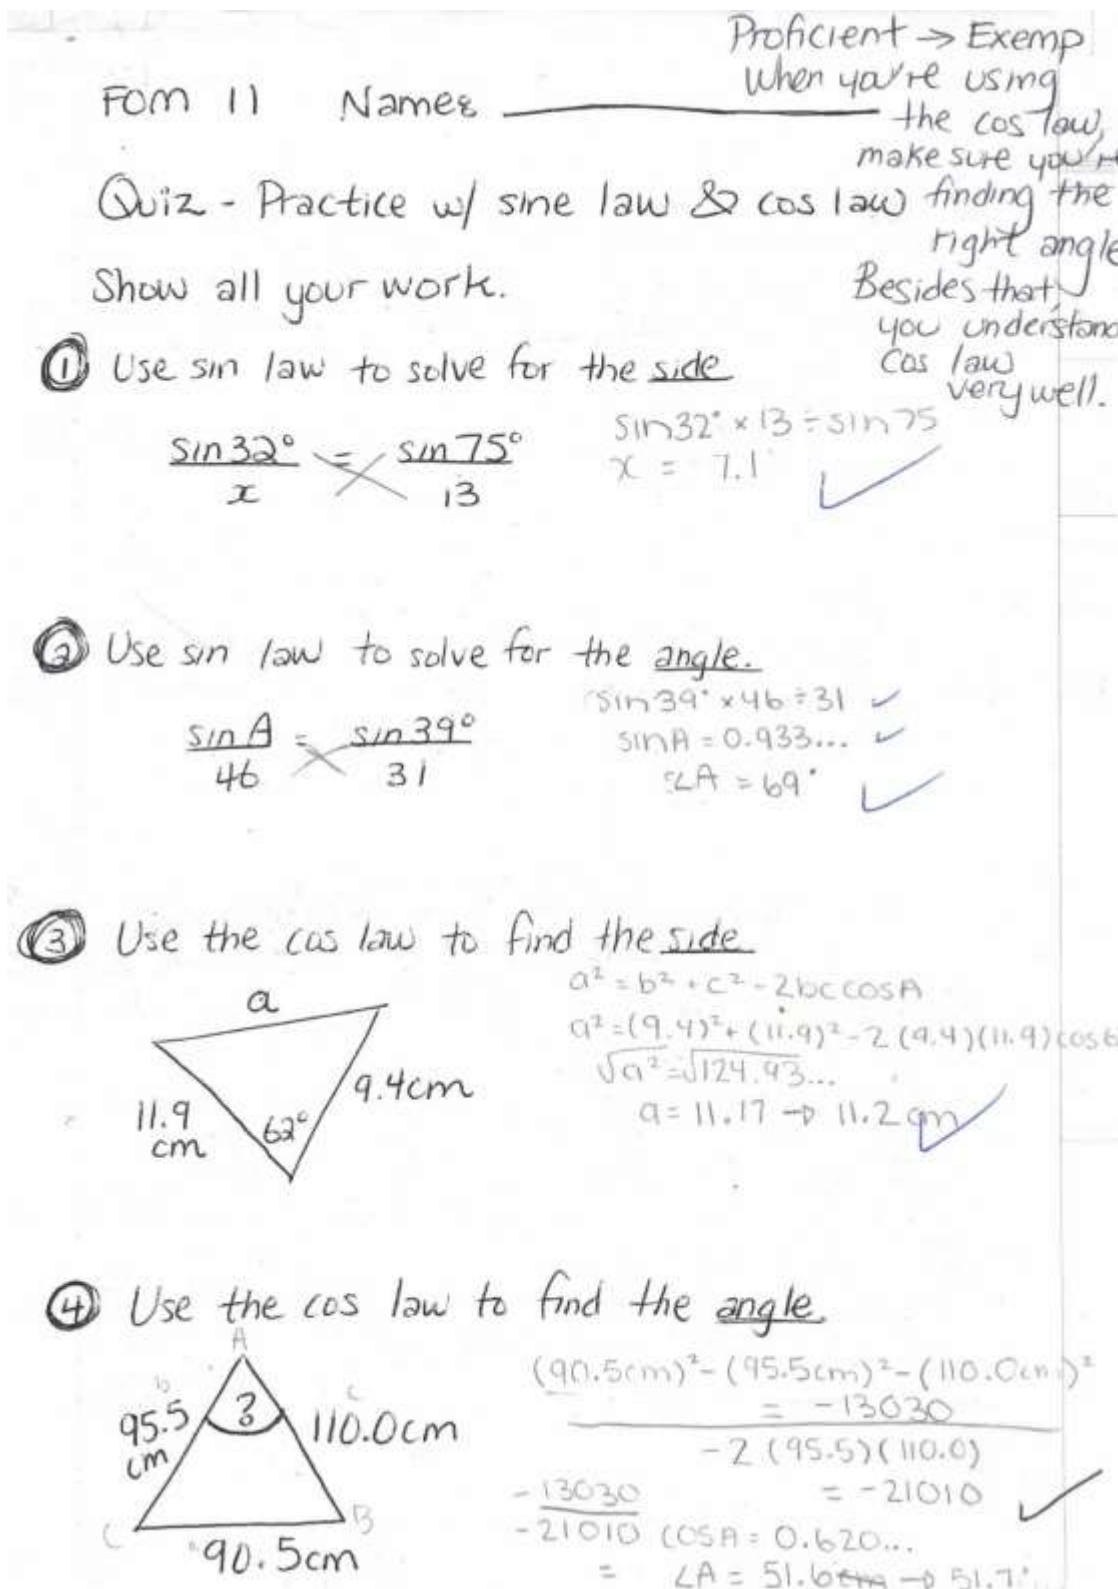 Proficient → Exemp
when you're using
the cos law,
make sure you're
finding the
right angle
Besides that,
you understand
cos law
very well.
FOM 11 Name:
Quiz - Practice w/ sine law & cos law
Show all your work.
① Use sin law to solve for the side
sin 32° / x = sin 75° / 13
sin32° × 13 ÷ sin75
x = 7.1
② Use sin law to solve for the angle.
sin A / 46 = sin 39° / 31
sin39° × 46 ÷ 31
sinA = 0.933...
∠A = 69°
③ Use the cos law to find the side
a
11.9
cm
62°
9.4cm
a² = b² + c² - 2bc cosA
a² = (9.4)² + (11.9)² - 2 (9.4)(11.9) cos6
√a² = √124.93...
a = 11.17 → 11.2 cm
④ Use the cos law to find the angle.
A
b
c
95.5
cm
?
110.0cm
C
B
90.5cm
(90.5cm)² - (95.5cm)² - (110.0cm)²
= -13030
-2 (95.5)(110.0)
= -21010
-13030
-21010 cosA = 0.620...
= ∠A = 51.6cm → 51.7°